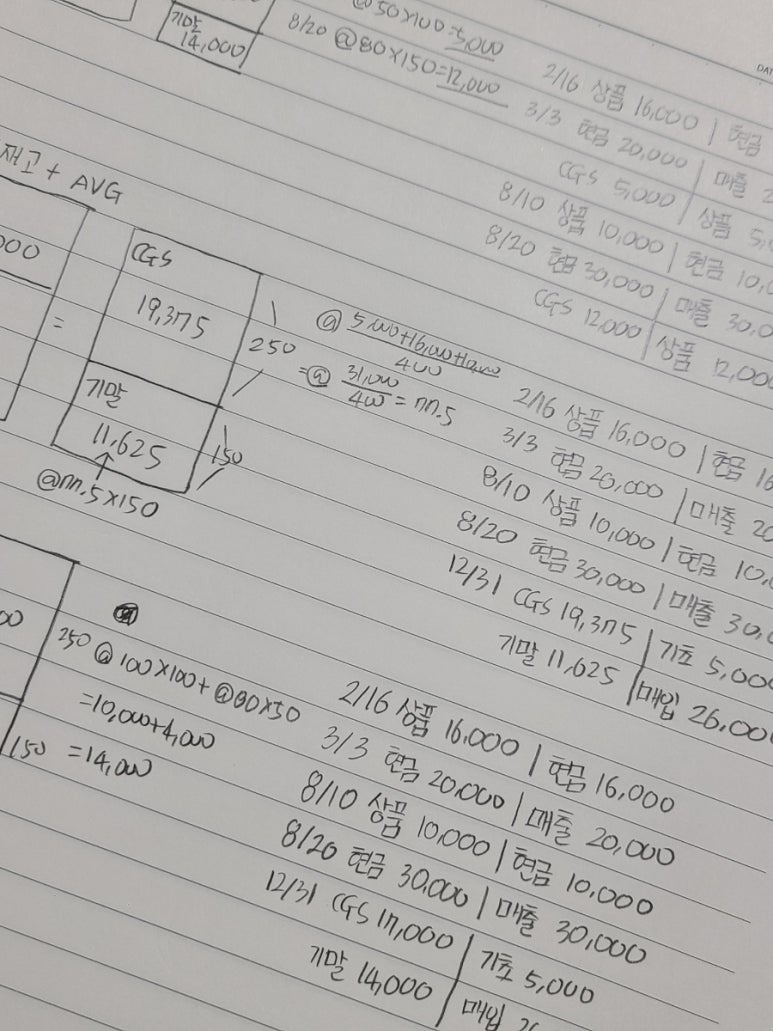 @50×100=5,000
기말
14,000
8/20 @80×150=12,000
2/16 상품 16,000 | 현금
3/3 현금 20,000 | 매출 2
CGS 5,000 | 상품 5,
8/10 상품 10,000 | 현금 10,0
8/20 현금 30,000 | 매출 30,0
CGS 12,000 | 상품 12,000
재고 + AVG
000
=
CGS
19,375
기말
11,625
@77.5×150
250
150
@ 5,000+16,000+10,000
400
=@ 31,000
400 = 77.5
2/16 상품 16,000 | 현금 16
3/3 현금 20,000 | 매출 20
8/10 상품 10,000 | 현금 10,
8/20 현금 30,000 | 매출 30,0
12/31 CGS 19,375 | 기초 5,000
기말 11,625 | 매입 26,00
00
250 @100×100+@80×50
=10,000+4,000
150 =14,000
2/16 상품 16,000 | 현금 16,000
3/3 현금 20,000 | 매출 20,000
8/10 상품 10,000 | 현금 10,000
8/20 현금 30,000 | 매출 30,000
12/31 CGS 17,000 | 기초 5,000
기말 14,000 | 매입 26